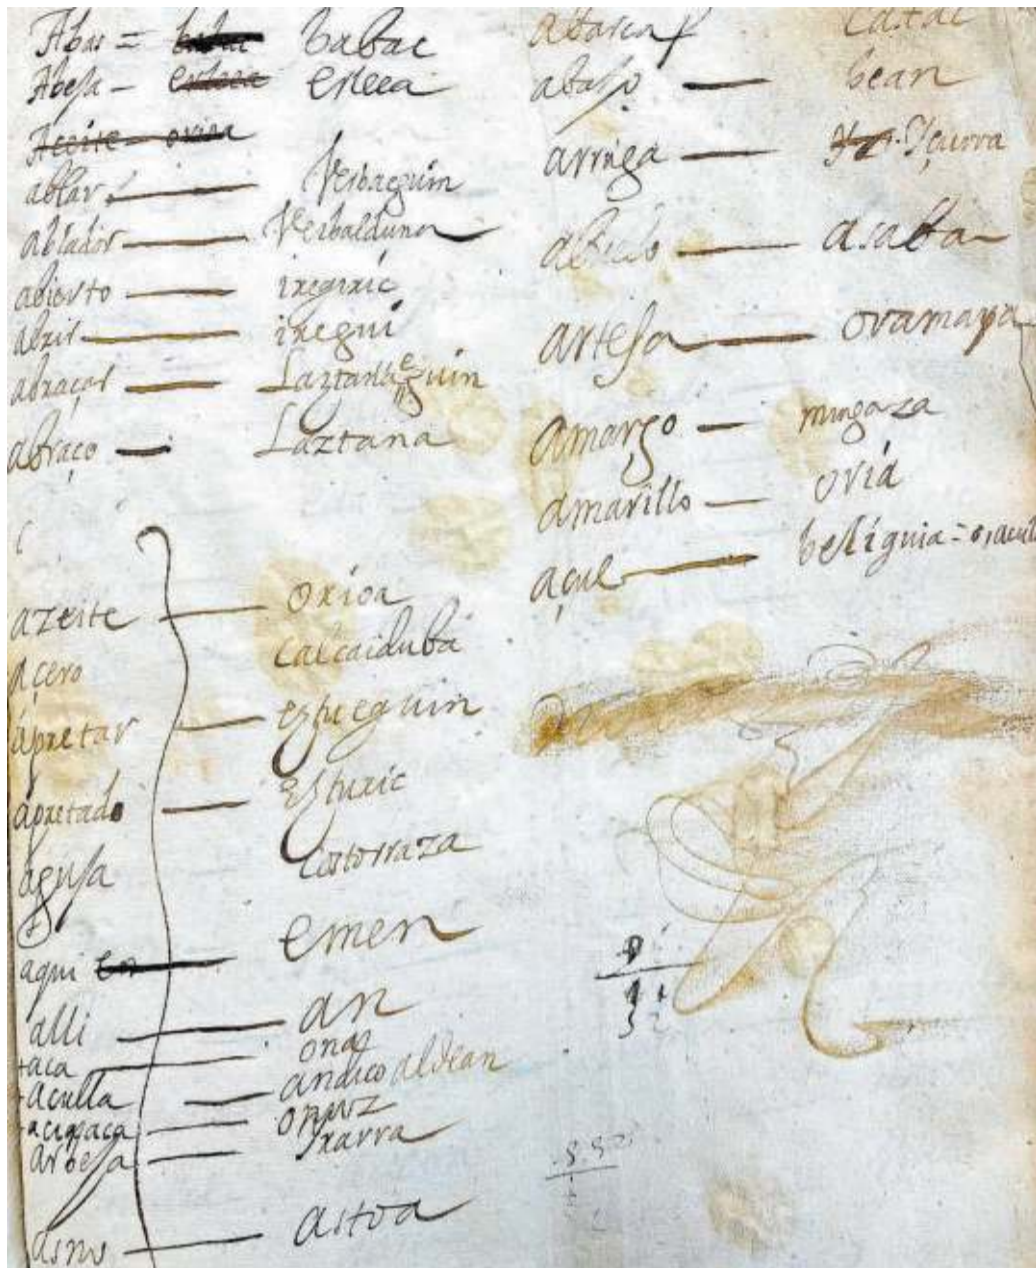 Abas = babac
Abeja – erleea
Aceite – orioa
ablar – Verbaeguin
ablador – Verbalduna
abierto – iregiric
abrir – iregui
abraçar – Laztanaeguin
abraço – Laztana
azeite – orioa
açero calcaiduba
apretar – estueguin
apretado – esturic
aguja Costorraza
aqui – emen
alli – an
+aca – ona
+aculla – andico aldean
arbeja – Ixarra
asno – astoa
abarca
abajo – bean
arruga – Yçurra
abuelo – asaba
artesa – oramaya
amargo – mingaza
amarillo – oria
açul – beliguia =